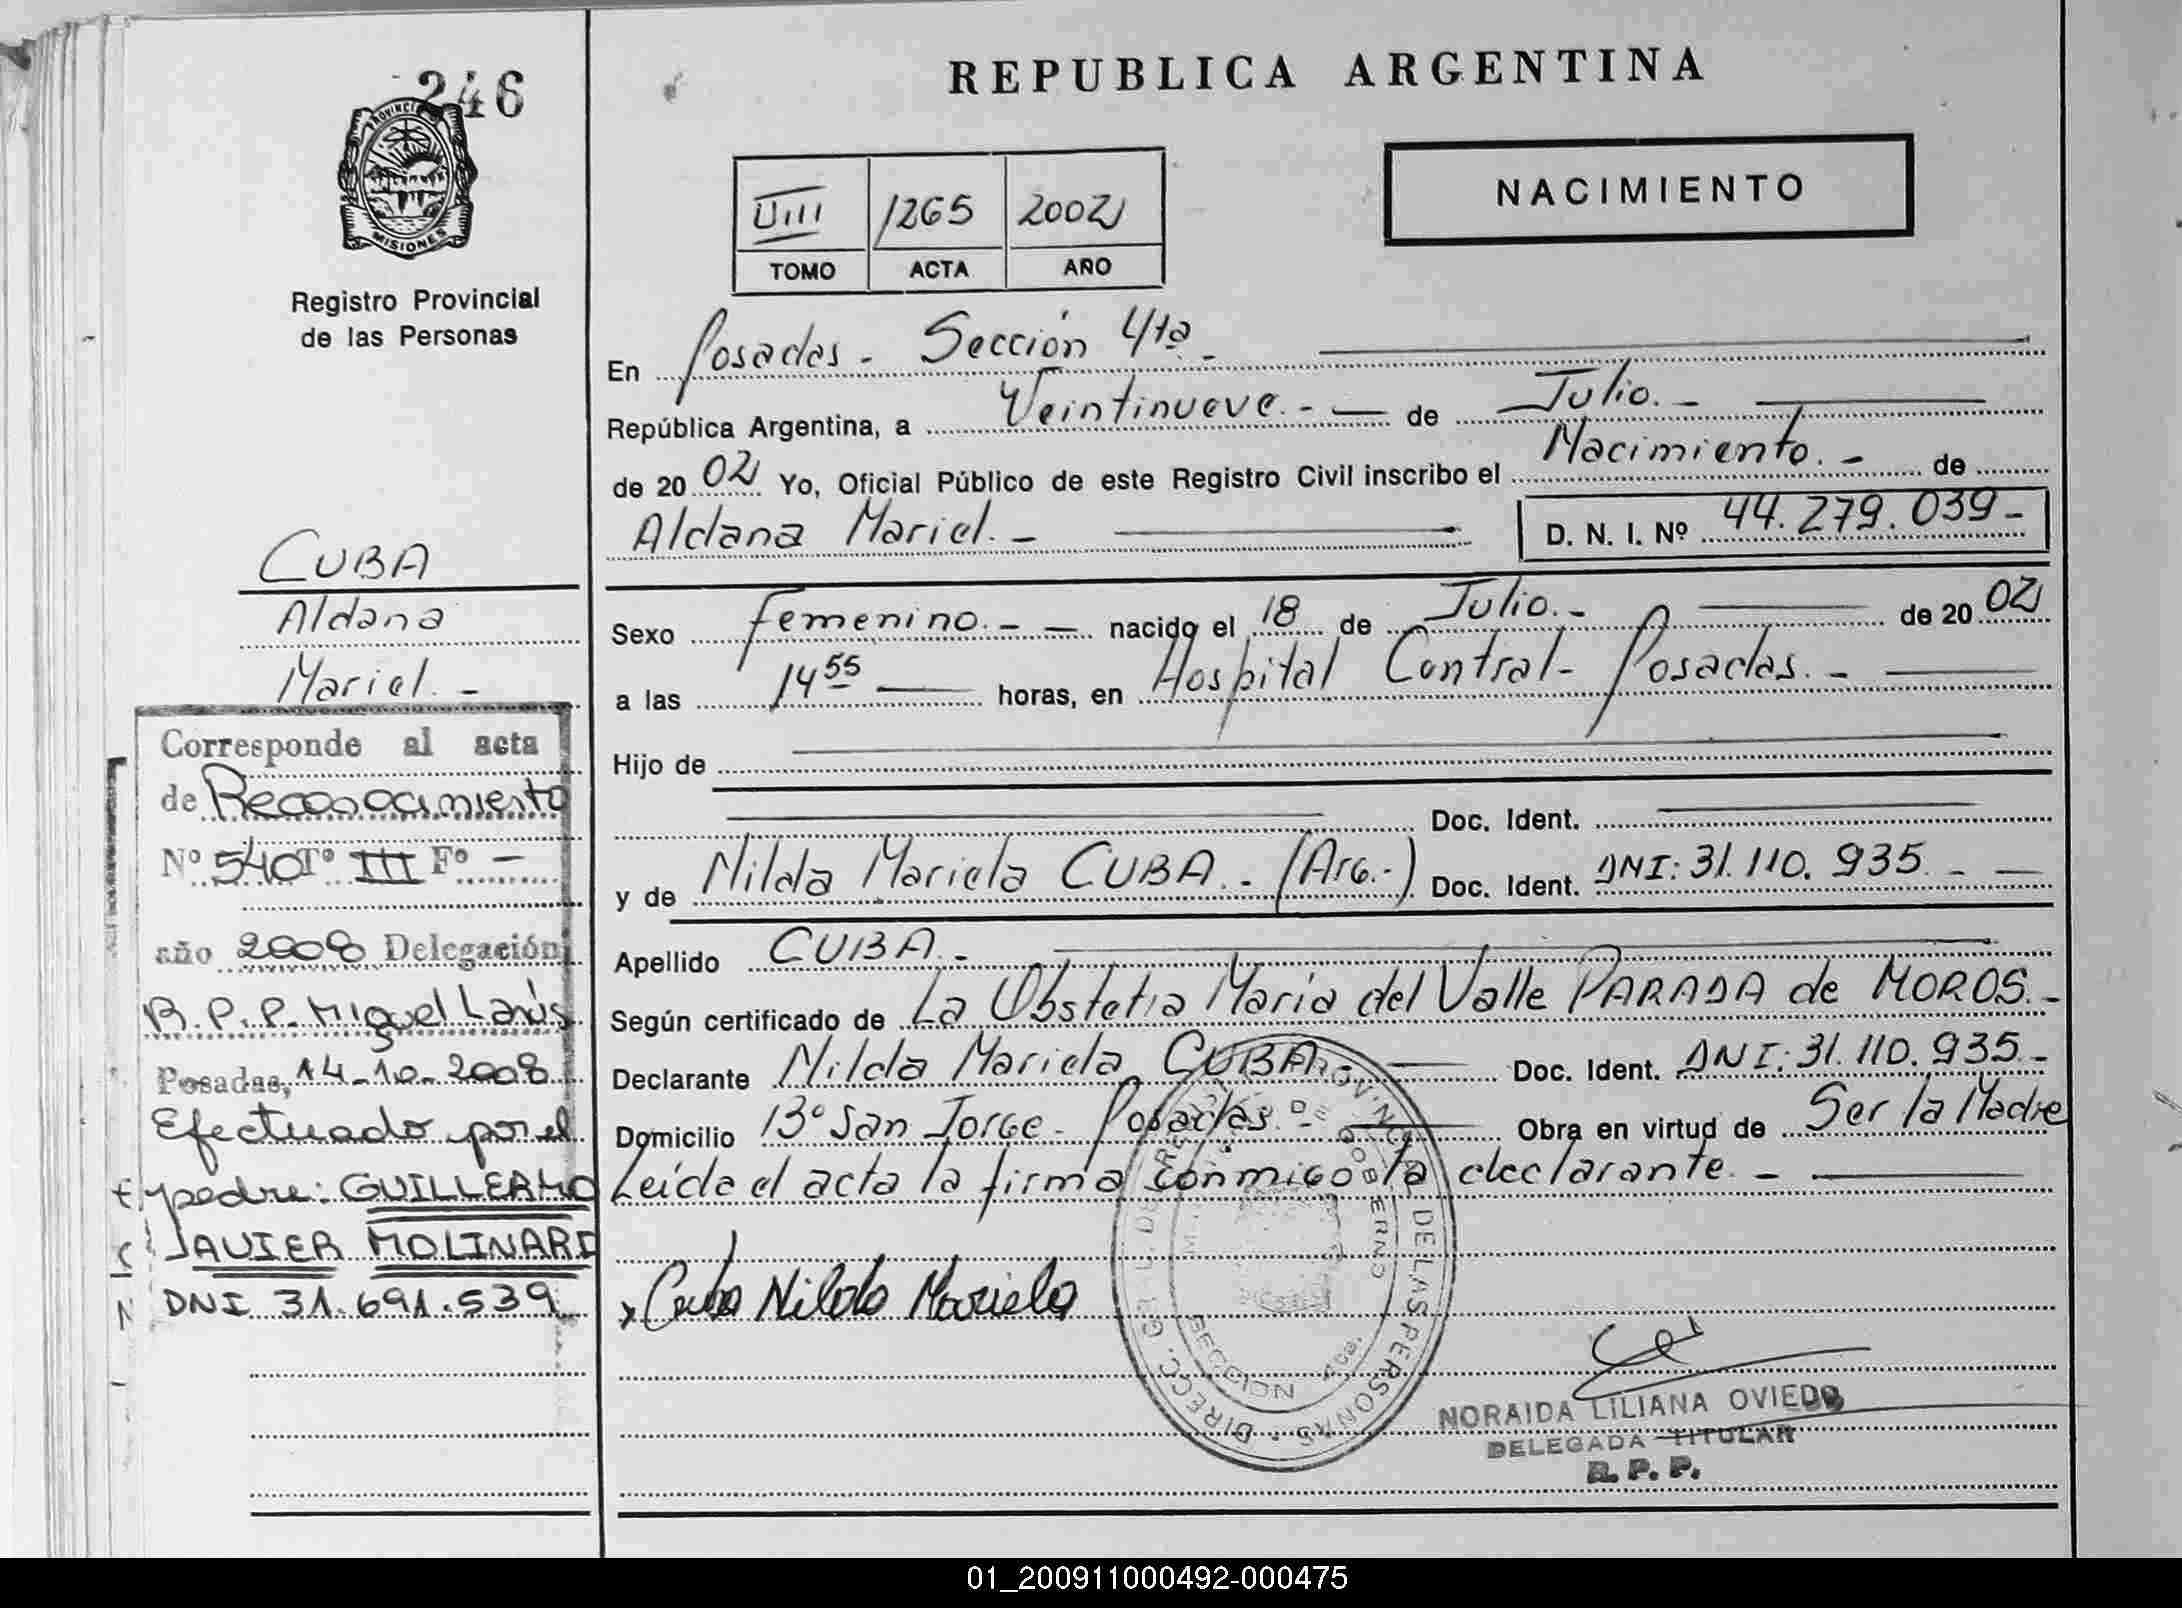 246
PROVINCIA
MISIONES
Registro Provincial
de las Personas
REPUBLICA ARGENTINA
NACIMIENTO
VIII 1265 2002
TOMO ACTA AÑO
En Posadas - Sección 4ta -
República Argentina, a Veintinueve. - de Julio. -
de 20 02 Yo, Oficial Público de este Registro Civil inscribo el Nacimiento. - de
Aldana Mariel. - D. N. I. Nº 44.279.039-
Sexo femenino. - - nacido el 18 de Julio. - de 20 02
a las 14 55 horas, en Hospital Central - Posadas. -
Hijo de
Doc. Ident.
y de Nilda Mariela CUBA. - (Arg.-) Doc. Ident. DNI: 31.110.935. - -
Apellido CUBA. -
Según certificado de La Obstetra María del Valle PARADA de MOROS. -
Declarante Nilda Mariela CUBA Doc. Ident. DNI: 31.110.935. -
Domicilio Bº San Jorge - Posadas. - Obra en virtud de Ser la Madre
Leída el acta la firma conmigo la declarante. -
Cuba Nilda Mariela
NORAIDA LILIANA OVIEDO
DELEGADA TITULAR
R. P. P.
CUBA
Aldana
Mariel. -
Corresponde al acta
de Reconocimiento
Nº 540 Tº III Fº -
año 2008 Delegación
R.P.P. Miguel Lanús
Posadas, 14-10-2008
Efectuado por el
padre: GUILLERMO
JAVIER MOLINARI
DNI 31.691.539
DE LAS PERSONAS
DE GOBIERNO
SECCION 4ta.
01_200911000492-000475